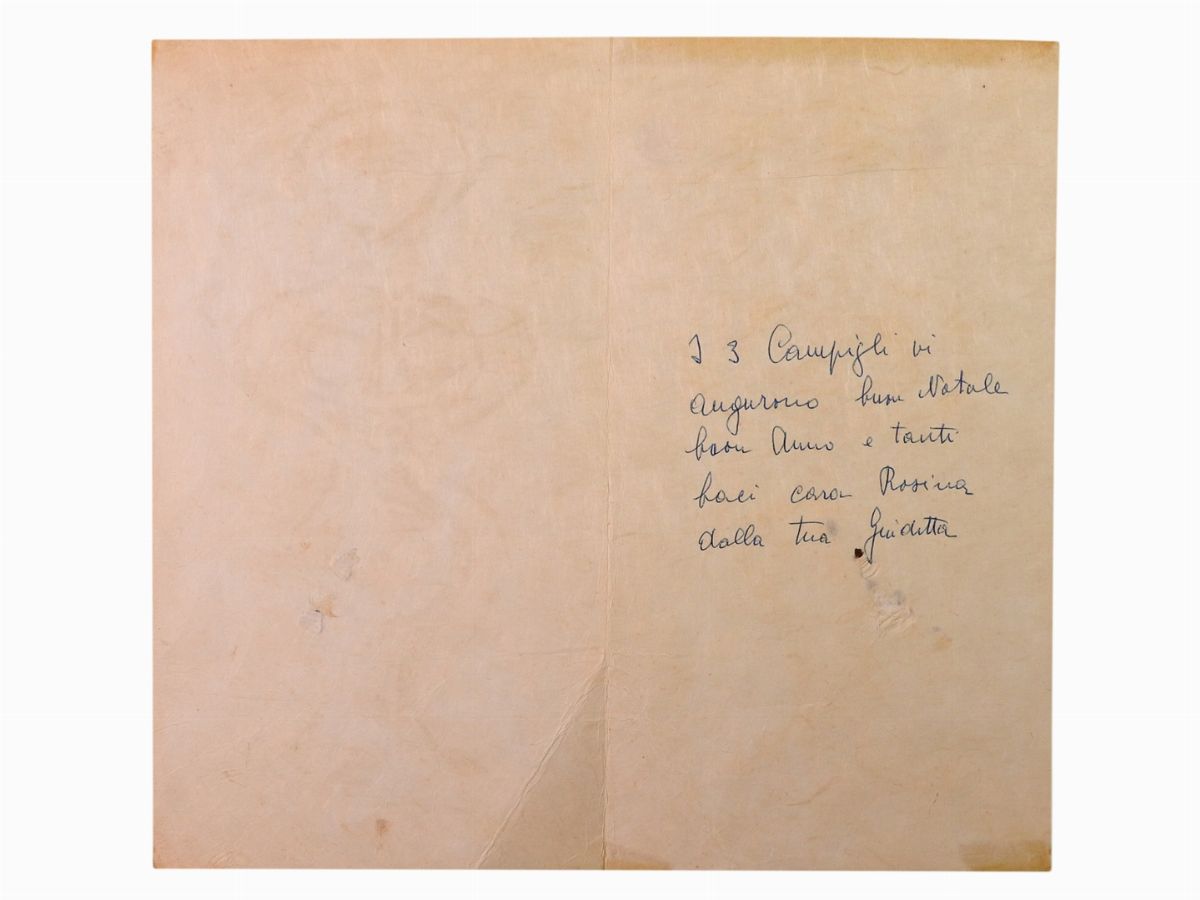 I 3 Campigli vi
augurano buon Natale
buon Anno e tanti
baci cara Rosina
dalla tua Giuditta